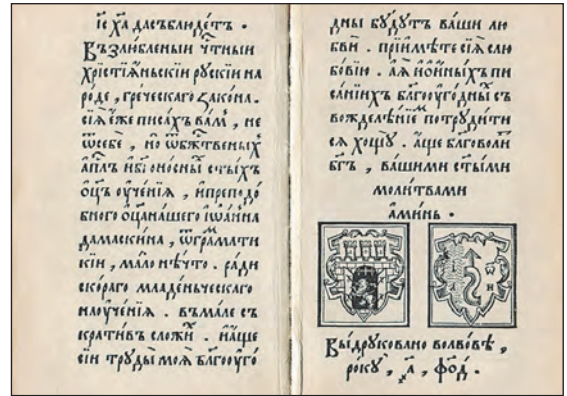 і҆с ха҃ да съблюде́тъ .
Възлю́бленыи чтныи
хрⷭ҇тїа́ньскїи ру́скїи на
ро́де , гре́ческаго зако́на .
сїѧ̀ е҆́же писа́хъ ва́мъ , не
ѿ себе , но ѿ бж҃твеныⷯ
а҆пл҃ъ и҆ бг҃оно́сныⷯ ст҃ы́хъ
ѻ҆ц҃ъ оу҆че́нїѧ , и҆ препод́о
бного ѻ҆ц҃а на́шего і҆ѡа́нна
дамаски́на , ѿ грама́ти
кїи , ма́ло нѣ́что . ра́ди
ско́раго младе́ньческаго
наоу҆че́нїѧ . въ ма́ле съ
крати́въ сложи́ⷯ . и҆ а҆́ще
сїи трꙋды̀ моѧ̀ бл҃гооу҆го́
дны бꙋ́дꙋтъ ва́ши лю
бви̑ . прїимѣ́те сїѧ̀ слю
бо́вїю . а҆ ѧ҆ и҆ и҆́ны́хъ пи
са́нїиⷯ бл҃гооу҆го́дныⷯ съ
вожделѣ́нїеⷨ потрꙋди́ти
сѧ хощꙋ̀ . а҆́ще бл҃говоли́т
бг҃ъ , ва́шими ст҃ы́ми
моли́твами
а҆ми́нь .
Вы́дрꙋковано во лво́вѣ ,
ро́кꙋ , ҂а҃ , фо҃д .